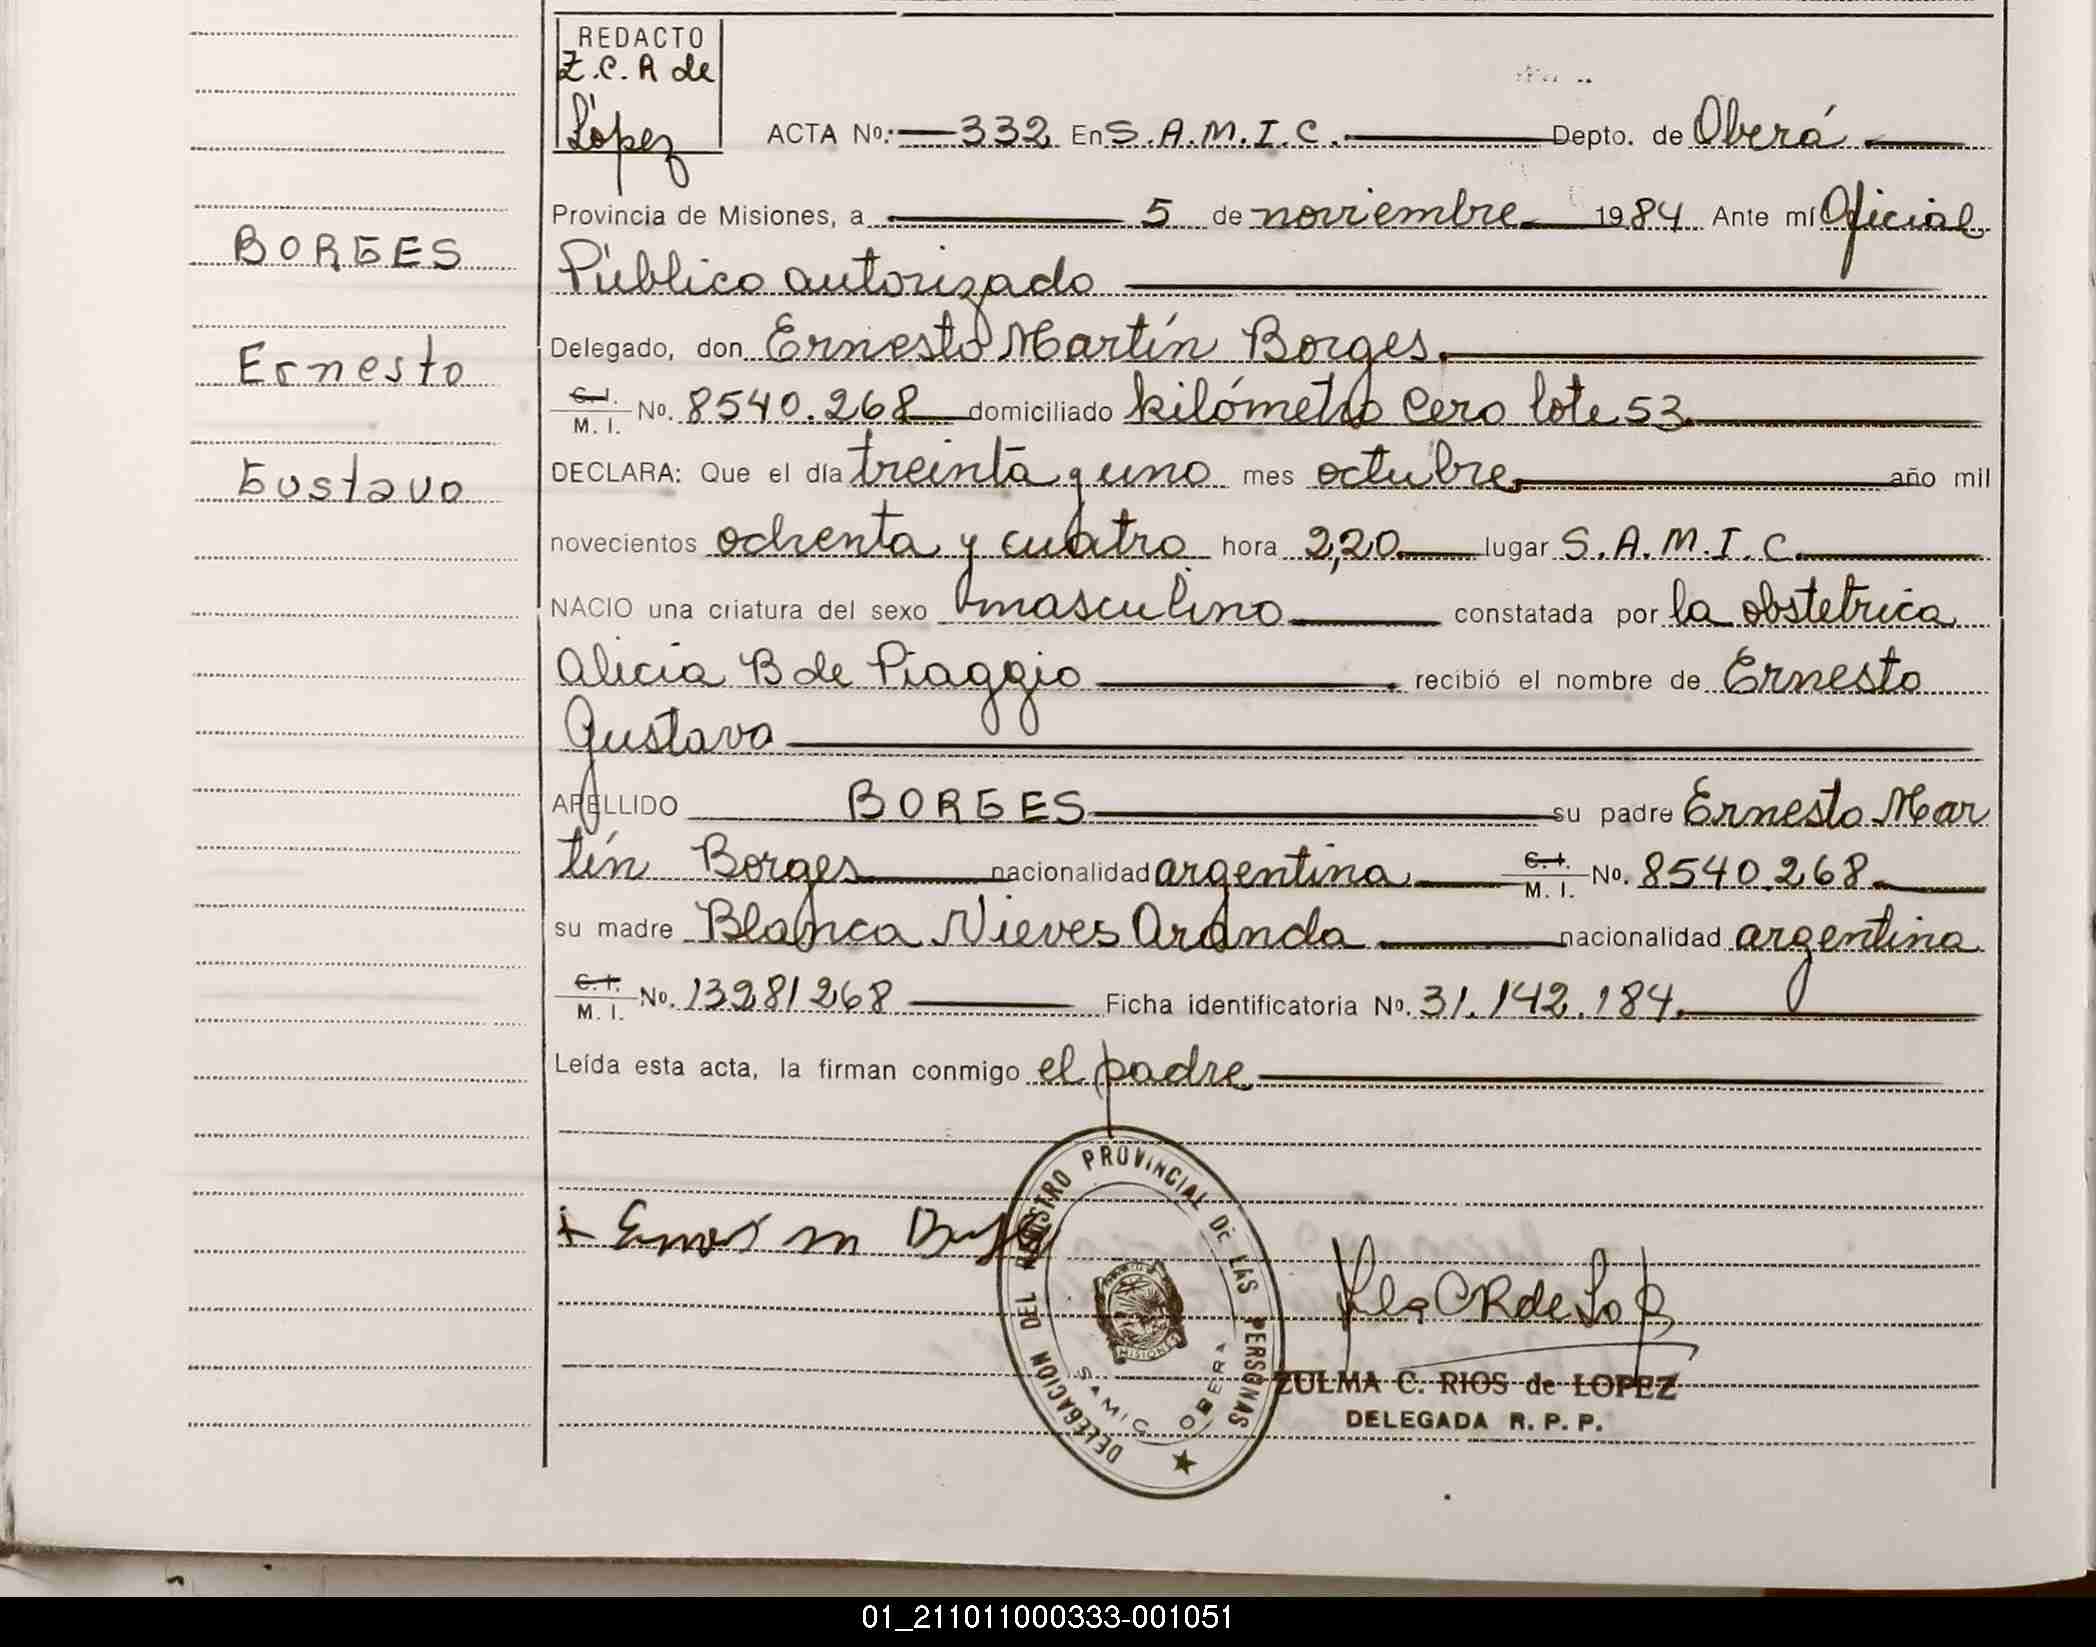 REDACTO
Z.C.R de
López
ACTA No.: 332 En S.A.M.I.C. Depto. de Oberá
Provincia de Misiones, a 5 de noviembre 1984 Ante mí Oficial
Público autorizado
Delegado, don Ernesto Martín Borges.
C.I. M.I. No. 8540.268 domiciliado kilómetro Cero lote 53
DECLARA: Que el día treinta y uno mes octubre año mil
novecientos ochenta y cuatro hora 2,20 lugar S.A.M.I.C.
NACIO una criatura del sexo masculino constatada por la obstetrica
Alicia B de Piaggio recibió el nombre de Ernesto
Gustavo
APELLIDO BORGES su padre Ernesto Mar
tín Borges nacionalidad argentina C.I. M.I. No. 8540.268
su madre Blanca Nieves Aranda nacionalidad argentina
C.I. M.I. No. 13281268 Ficha identificatoria No. 31.142.184
Leída esta acta, la firman conmigo el padre
BORGES
Ernesto
Gustavo
DELEGACION DEL REGISTRO PROVINCIAL DE LAS PERSONAS
MISIONES
SAMIC OBERA
ZULMA C. RIOS de LOPEZ
DELEGADA R. P. P.
01_211011000333-001051